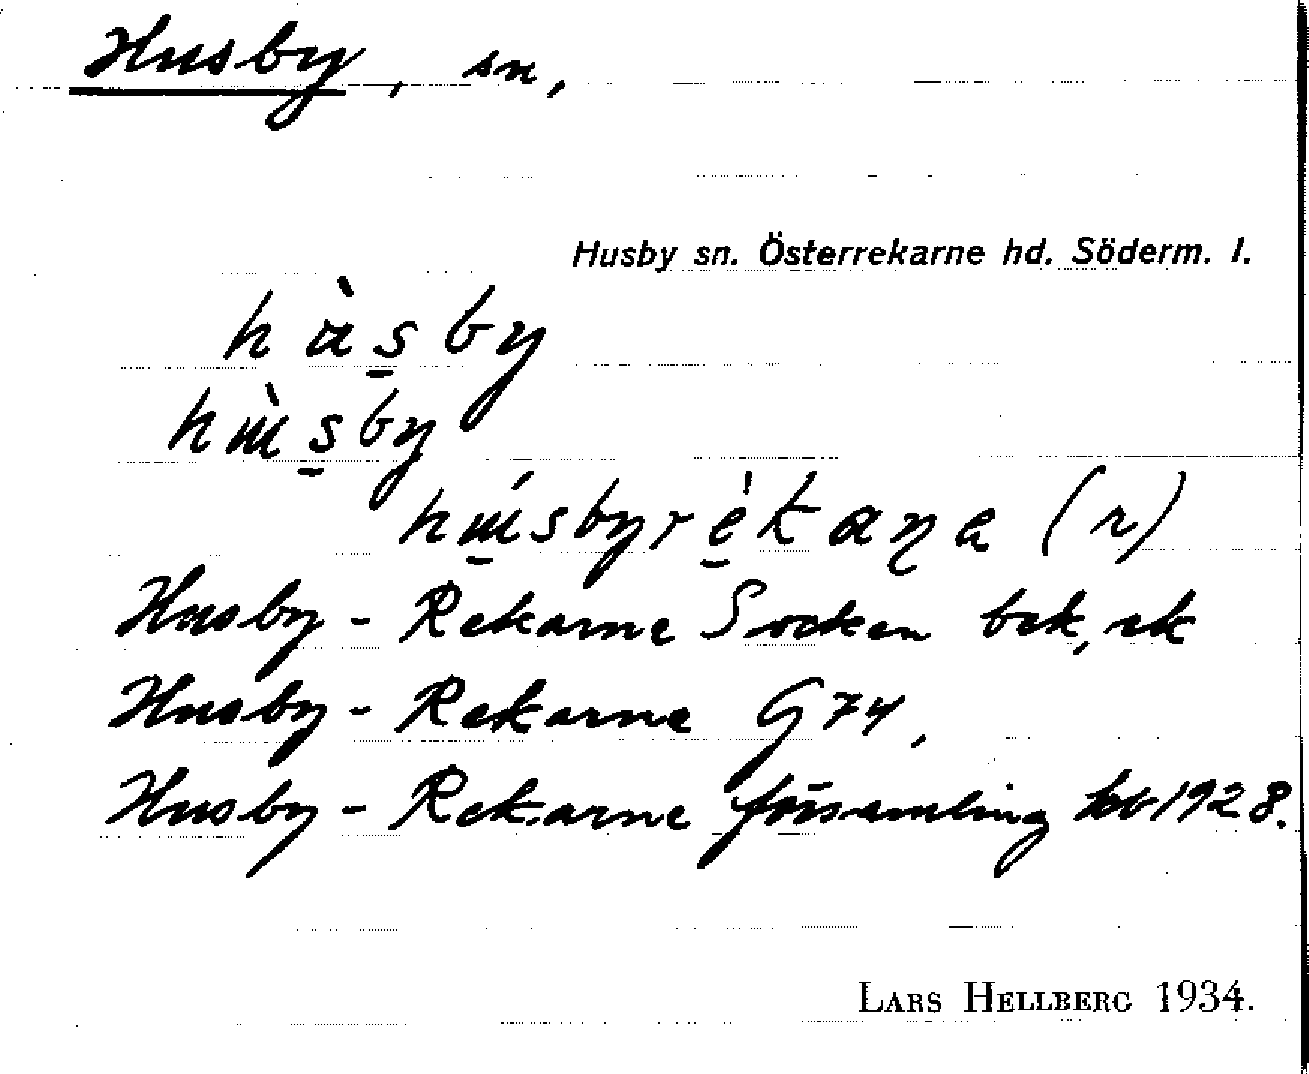 Husby, sn,
Husby sn. Österrekarne hd. Söderm. l.
hàsby
hùsby
Husby-Rekarne Socken bek, sk
Husby-Rekarne G 74,
Husby-Rekarne församling kb 1928.
LARS HELLBERG 1934.